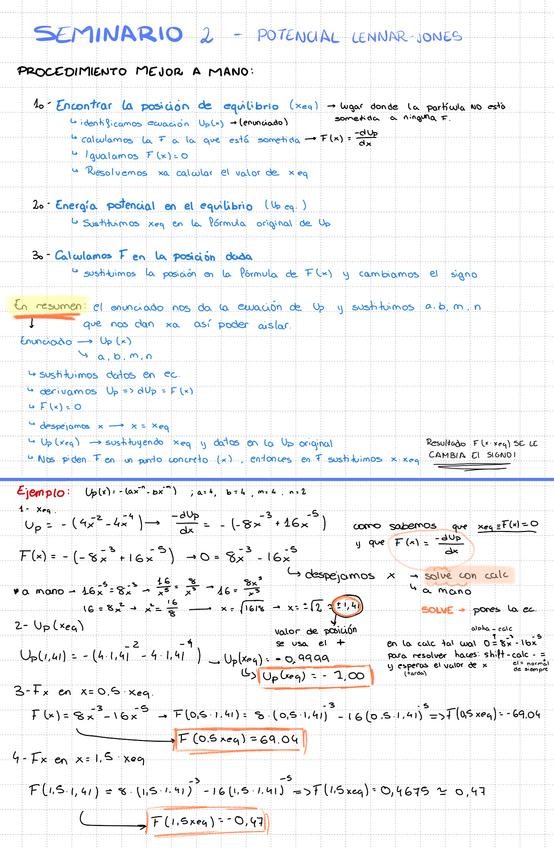 SEMINARIO 2 - POTENCIAL LENNAR-JONES
PROCEDIMIENTO MEJOR A MANO:
1o- Encontrar la posición de equilibrio (xeq) → lugar donde la partícula NO está sometida a ninguna F.
↳ identificamos ecuación Up(x) → (enunciado)
↳ calculamos la F a la que está sometida → F(x) = -dUp/dx
↳ Igualamos F(x)=0
↳ Resolvemos xa calcular el valor de xeq
2o- Energía potencial en el equilibrio (Up eq.)
↳ Sustituimos xeq en la fórmula original de Up
3o- Calculamos F en la posición dada
↳ sustituimos la posición en la fórmula de F(x) y cambiamos el signo
En resumen: el enunciado nos da la ecuación de Up y sustituimos a, b, m, n
que nos dan xa así poder aislar.
Enunciado → Up(x)
↳ a, b, m, n
↳ sustituimos datos en ec.
↳ derivamos Up => dUp = F(x)
↳ F(x)=0
↳ despejamos x → x = xeq
↳ Up(xeq) → sustituyendo xeq y datos en la Up original
↳ Nos piden F en un punto concreto (x), entonces en F sustituimos x·xeq
Resultado F(x·xeq) SE LE
CAMBIA El SIGNO!
Ejemplo: Up(x) = -(ax⁻ⁿ - bx⁻ᵐ) ; a=4, b=4, m=4, n=2
1- xeq.
Up = -(4x⁻² - 4x⁻⁴) → -dUp/dx = -(-8x⁻³ + 16x⁻⁵)
como sabemos que xeq = F(x)=0
y que F(x) = -dUp/dx
F(x) = -(-8x⁻³ + 16x⁻⁵) → 0 = 8x⁻³ - 16x⁻⁵
↳ despejamos x → solve con calc
↳ a mano
* a mano → 16x⁻⁵ = 8x⁻³ → 16/x⁵ = 8/x³ → 16 = 8x⁵/x³
16 = 8x² → x² = 16/8 → x = √16/8 → x = ±√2 = ±1,41
SOLVE → pones la ec.
valor de posición
se usa el +
alpha-calc
en la calc tal cual 0 = 8x⁻³ - 16x⁻⁵
para resolver haces: shift-calc - =
y esperas el valor de x
(tarda)
el = normal
de siempre
2- Up(xeq)
Up(1,41) = -(4·1,41⁻² - 4·1,41⁻⁴) → Up(xeq) = -0,9999
↳ Up(xeq) = -1,00
3- Fx en x=0,5·xeq.
F(x) = 8x⁻³ - 16x⁻⁵ → F(0,5·1,41) = 8·(0,5·1,41)⁻³ - 16(0,5·1,41)⁻⁵ => F(0,5xeq) = -69.04
F(0.5xeq) = 69.04
4- Fx en x=1,5·xeq
F(1,5·1,41) = 8·(1,5·1,41)⁻³ - 16(1,5·1,41)⁻⁵ => F(1,5xeq) = 0,4675 ≈ 0,47
F(1,5xeq) = -0,47